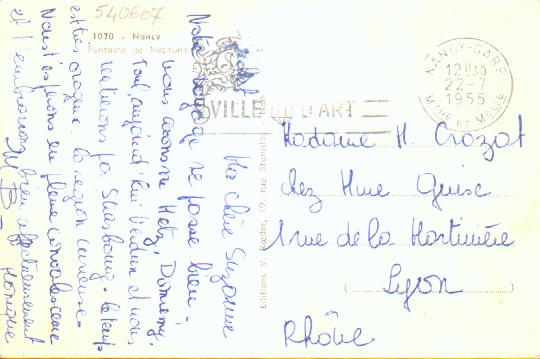 540607
1070 - Nancy
Fontaine de Neptune
Ma chère Suzanne
Notre voyage se passe bien.
nous avons vu Metz, Domremy,
Tout aujourd'hui Verdun et nous
rentrerons par Strasbourg. Le temps
est très orageux. la région curieuse.
Nous t'espérons en pleine convalescence
et t'embrassons bien affectueusement
Monique
Editions V. Rœder, 19, rue Stanislas, Nancy
VILLE D'ART
NANCY-GARE
12H30
22-7
1955
MTHE ET MELLE
Madame H. Crozat
chez Mme Guise
1 rue de la Martinière
Lyon
Rhône